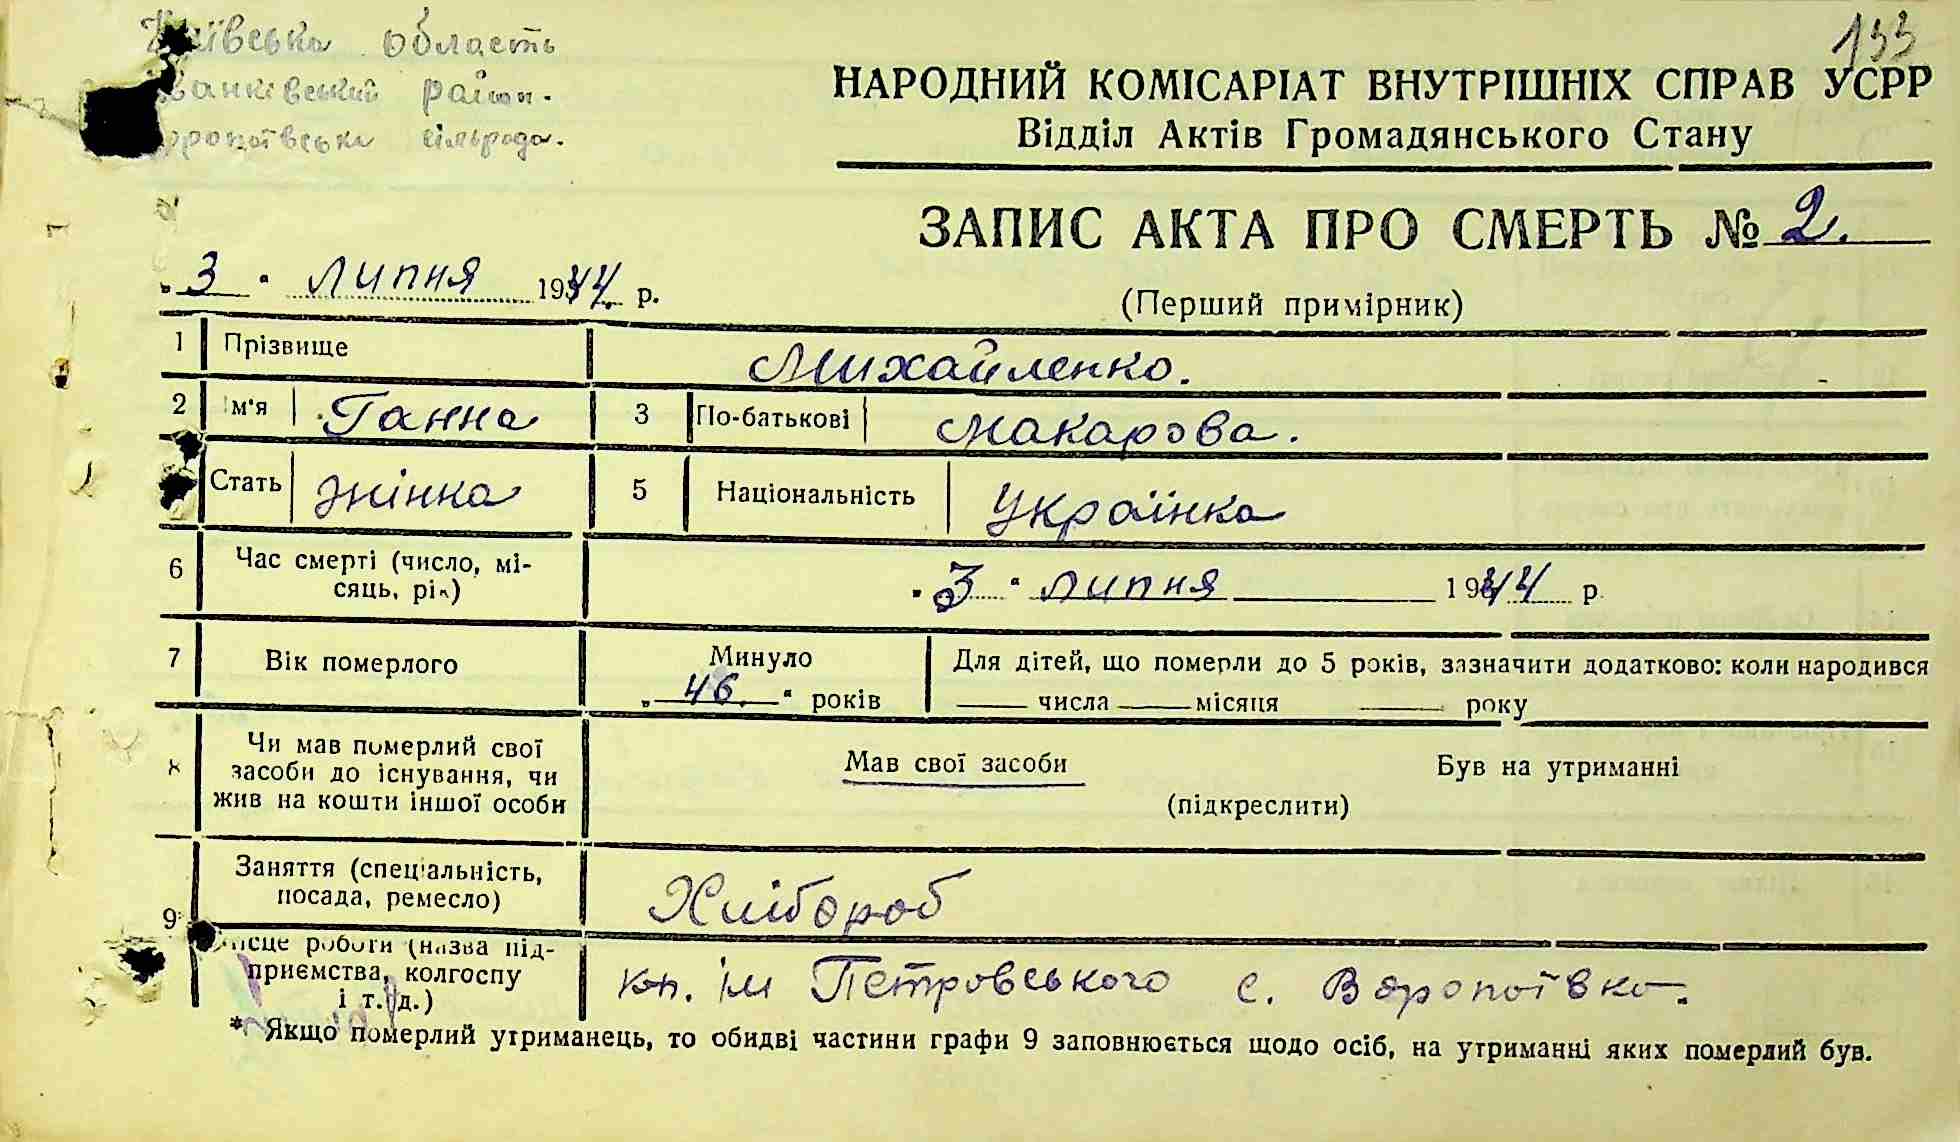 133
Київська область
Іванківський район.
Воропаївська сільрада.
НАРОДНИЙ КОМІСАРІАТ ВНУТРІШНІХ СПРАВ УСРР
Відділ Актів Громадянського Стану
ЗАПИС АКТА ПРО СМЕРТЬ № 2.
„3" липня 1944 р.
(Перший примірник)
1 Прізвище Михайленко.
2 Ім'я Ганна 3 По-батькові Макарова.
Стать жінка 5 Національність Українка
6 Час смерті (число, мі-
сяць, рік) „3" липня 1944 р.
7 Вік померлого Минуло „46." років
Для дітей, що померли до 5 років, зазначити додатково: коли народився
числа місяця року
8 Чи мав померлий свої
засоби до існування, чи
жив на кошти іншої особи
Мав свої засоби Був на утриманні
(підкреслити)
9* Заняття (спеціальність,
посада, ремесло) Хлібороб
Місце роботи (назва під-
приємства, колгоспу
і т. д.) кп. ім Петровського с. Воропаївка.
* Якщо померлий утриманець, то обидві частини графи 9 заповнюється щодо осіб, на утриманні яких померлий був.